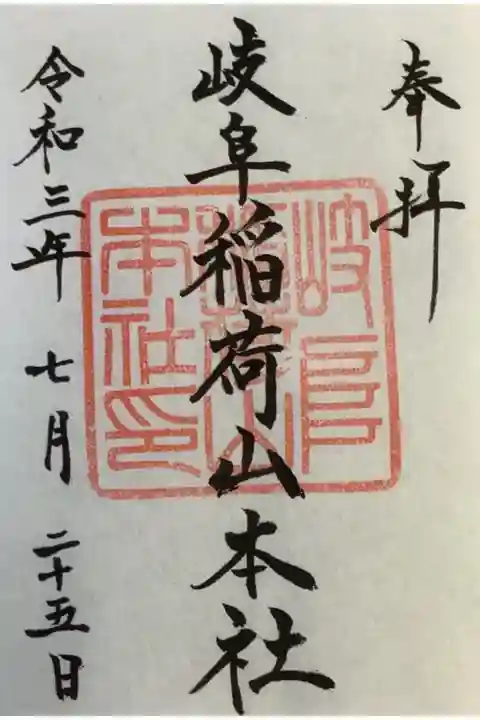 奉拝
岐阜稲荷山本社
岐阜
稲荷山
本社印
令和三年 七月 二十五日